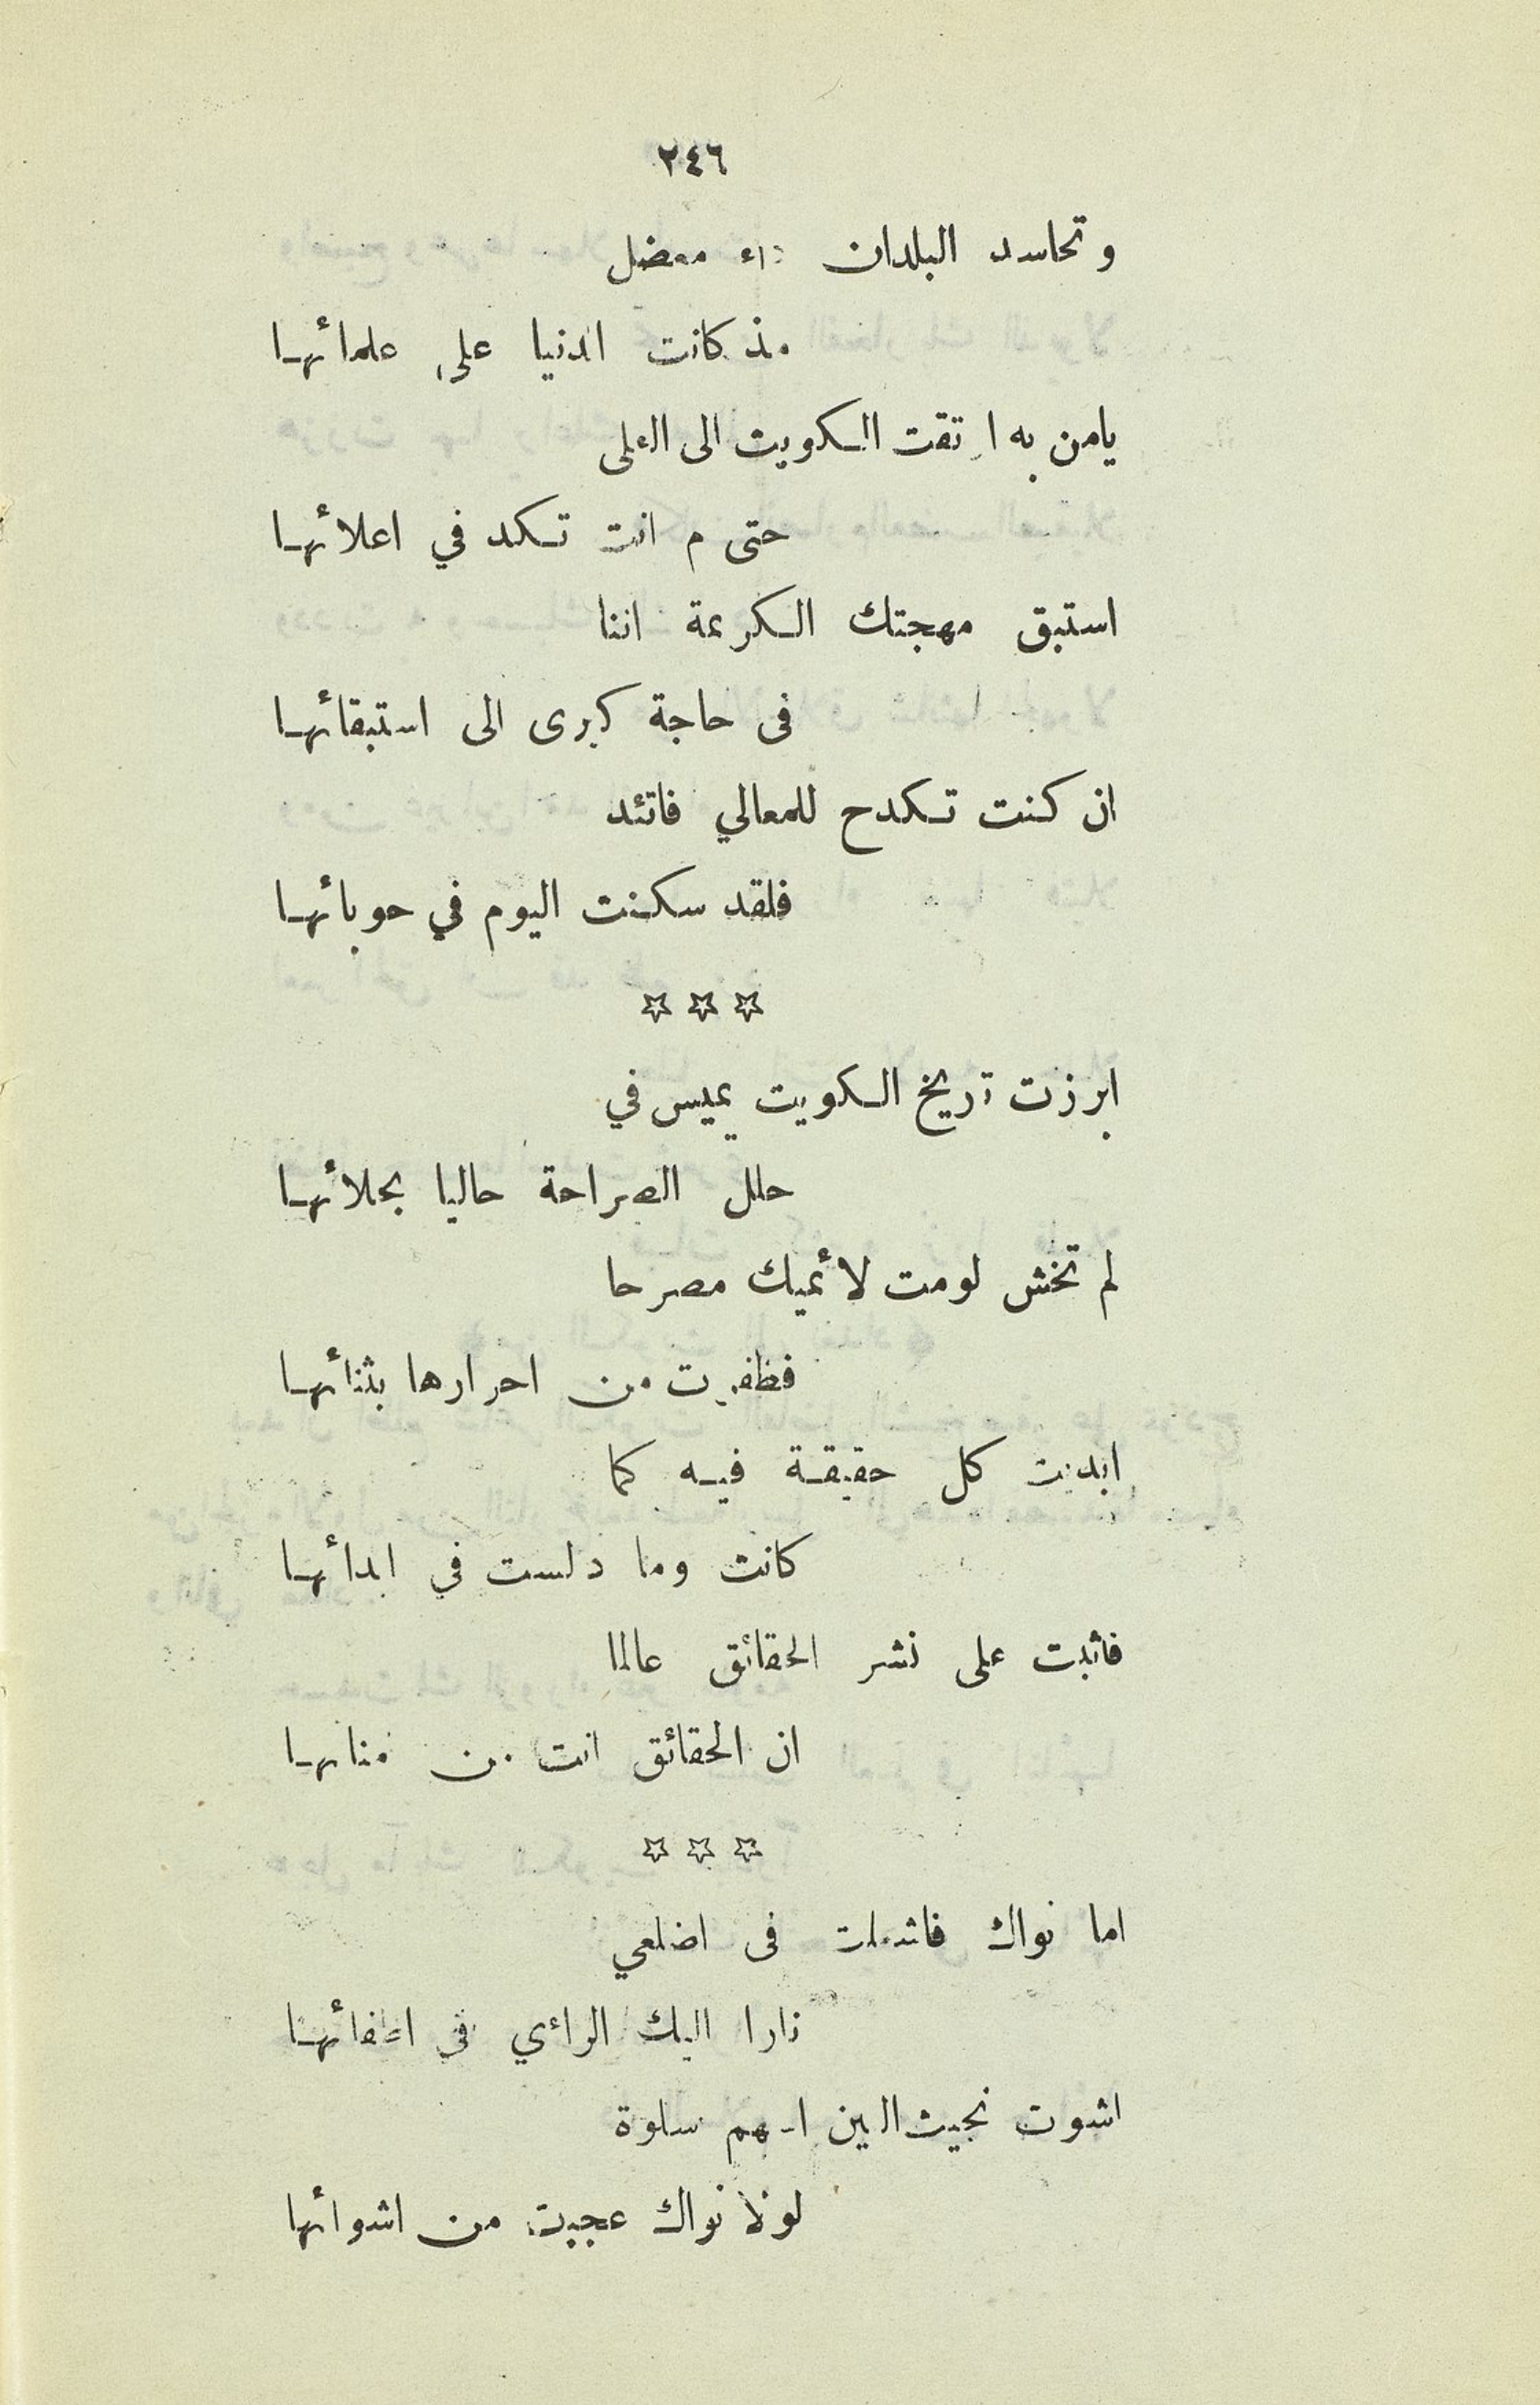 ٢٤٦
وتحاسد البلدان داء معضل
مذ كانت الدنيا على علمائها
يامن به ارتقت الكويت الى العلى
حتى م انت تكد في اعلائها
استبق مهجتك الكريمة اننا
فى حاجة كبرى الى استبقائها
ان كنت تكدح للمعالي فاتئد
فلقد سكنت اليوم في حوبائها
☆ ☆ ☆
ابرزت تاريخ الكويت يميس في
حلل الصراحة حاليا بحلائها
لم تخش لومت لائميك مصرحا
فظفرت من احرارها بثنائها
ابديت كل حقيقة فيه كما
كانت وما دلست في ابدائها
فاثبت على نشر الحقائق عالما
ان الحقائق انت من منابها
☆ ☆ ☆
اما نواك فاشعلت فى اضلعي
نارا اليك الرأي فى اطفائها
اشوت نجيث البين سلوة
لولا نواك عجبت من اشوائها